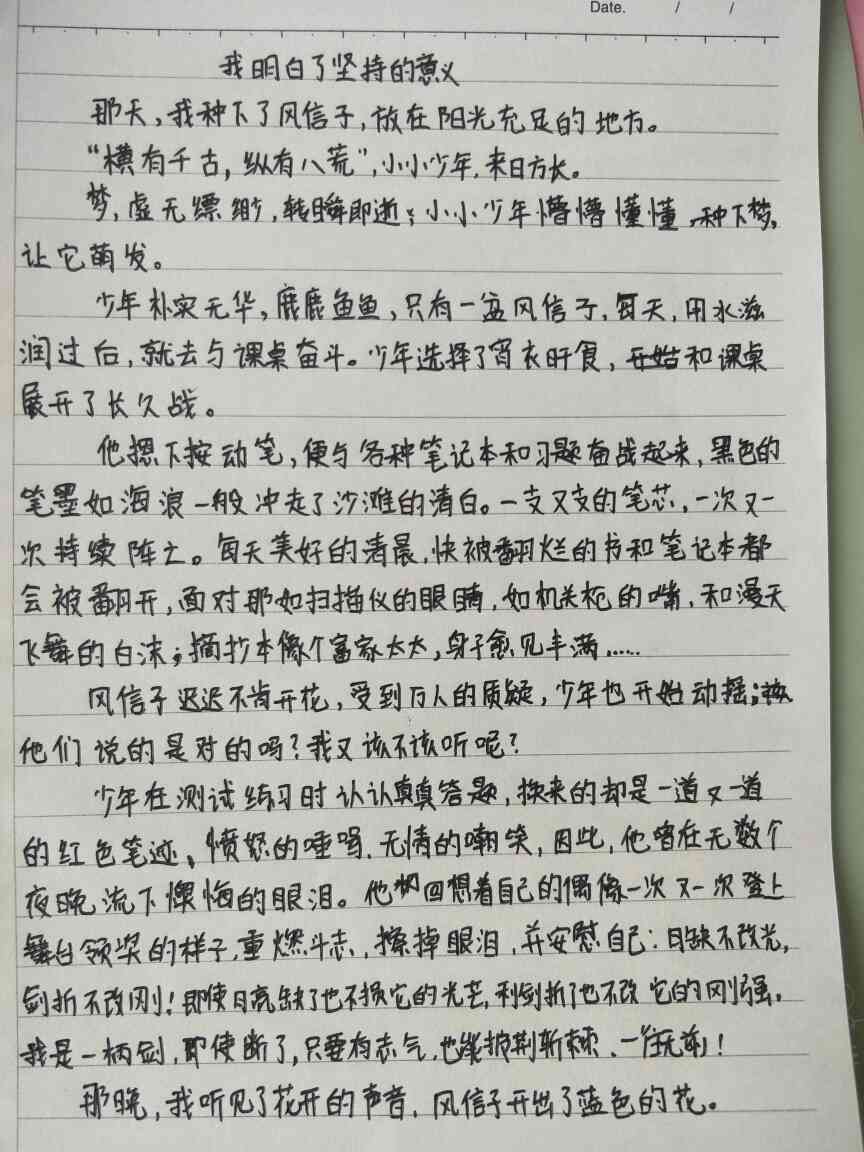 Date. / /
我明白了坚持的意义
那天，我种下了风信子，放在阳光充足的地方。
“横有千古，纵有八荒”，小小少年，来日方长。
梦，虚无缥缈，转瞬即逝；小小少年懵懵懂懂，种下梦，
让它萌发。
少年朴实无华，鹿鹿鱼鱼，只有一盆风信子，每天，用水滋
润过后，就去与课桌奋斗。少年选择了宵衣旰食，开始和课桌
展开了长久战。
他摁下按动笔，便与各种笔记本和习题奋战起来，黑色的
笔墨如海浪一般冲走了沙滩的清白。一支又支的笔芯，一次又一
次持续阵亡。每天美好的清晨，快被翻烂的书和笔记本都
会被翻开，面对那如扫描仪的眼睛，如机关枪的嘴，和漫天
飞舞的白沫；摘抄本像个富家太太，身子愈见丰满……
风信子迟迟不肯开花，受到万人的质疑，少年也开始动摇；
他们说的是对的吗？我又该不该听呢？
少年在测试练习时认认真真答题，换来的却是一道又一道
的红色笔迹、愤怒的唾骂、无情的嘲笑，因此，他曾在无数个
夜晚流下懊悔的眼泪。他回想着自己的偶像一次又一次登上
舞台领奖的样子，重燃斗志，擦掉眼泪，并安慰自己：月缺不改光，
剑折不改刚！即使月亮缺了也不损它的光芒，利剑折了也不改它的刚强。
我是一柄剑，即使断了，只要有志气，也能披荆斩棘、一往无前！
那晚，我听见了花开的声音，风信子开出了蓝色的花。